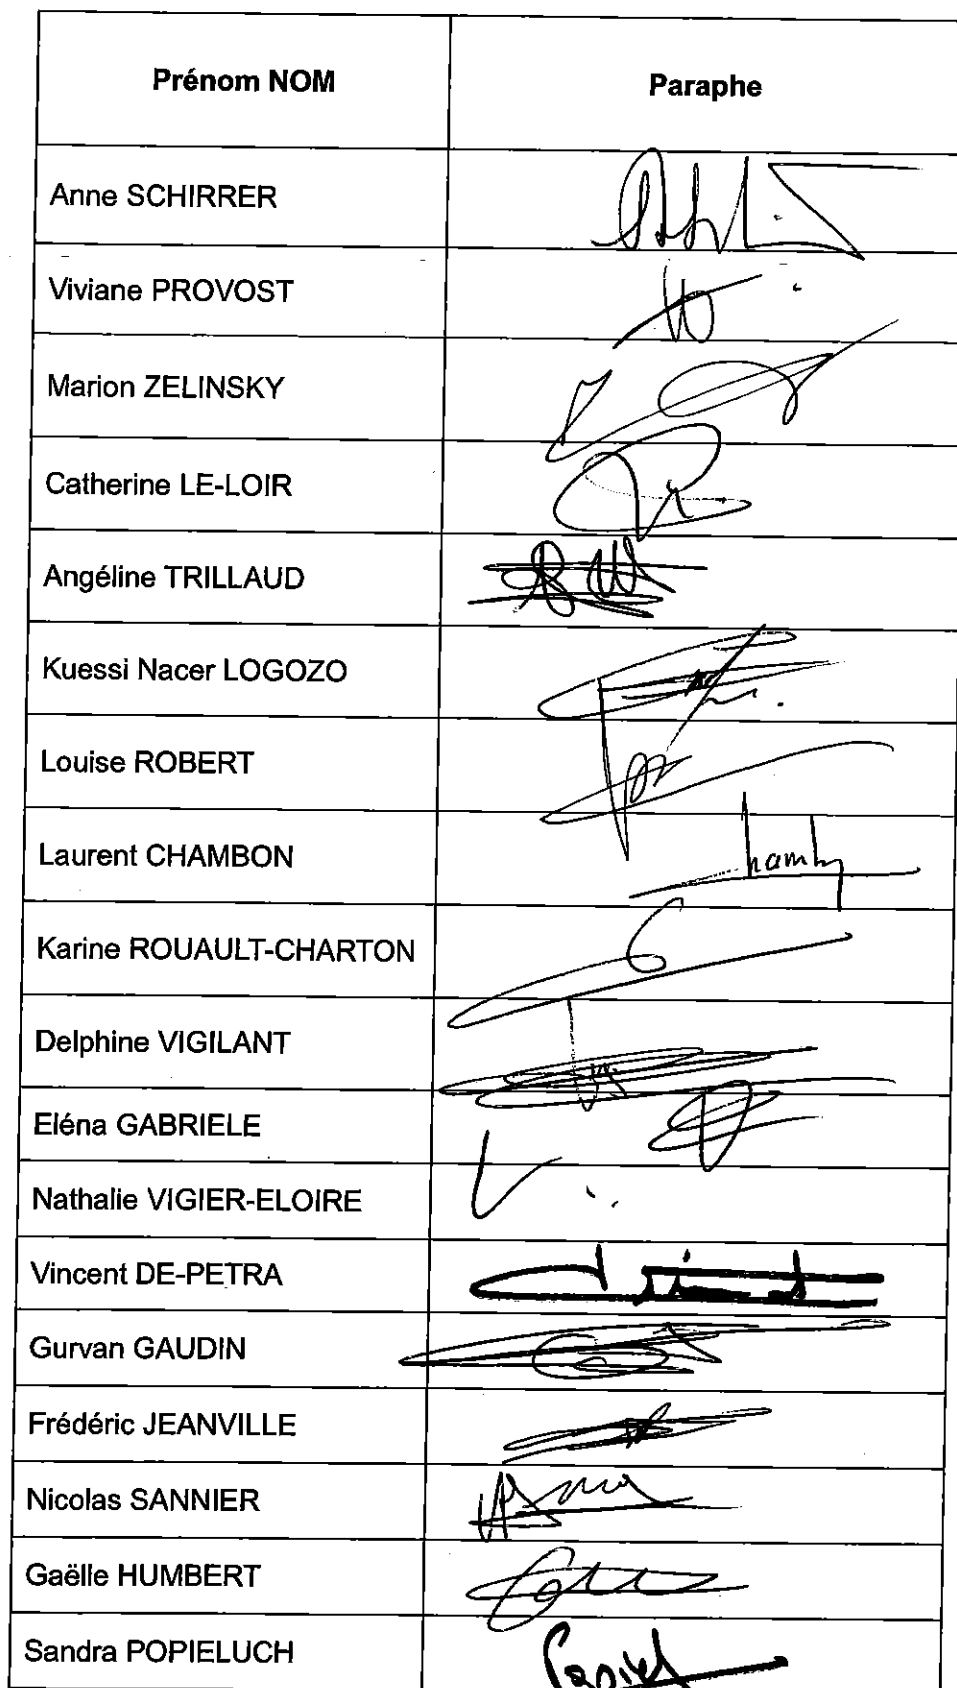 Prénom NOM Paraphe
Anne SCHIRRER
Viviane PROVOST
Marion ZELINSKY
Catherine LE-LOIR
Angéline TRILLAUD
Kuessi Nacer LOGOZO
Louise ROBERT
Laurent CHAMBON
Karine ROUAULT-CHARTON
Delphine VIGILANT
Eléna GABRIELE
Nathalie VIGIER-ELOIRE
Vincent DE-PETRA
Gurvan GAUDIN
Frédéric JEANVILLE
Nicolas SANNIER
Gaëlle HUMBERT
Sandra POPIELUCH